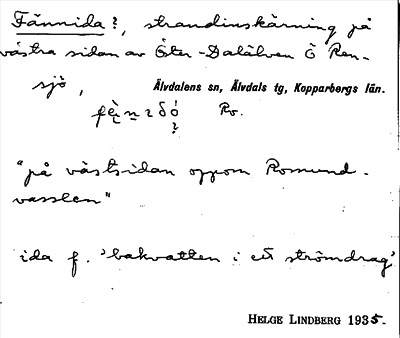 Fännida?, strandinskärning på
västra sidan av Öster-Dalälven Ö Ren-
sjö,
Älvdalens sn, Älvdals tg, Kopparbergs län.
Ro.
"på västsidan oppom Romund-
vasslen"
ida f. 'bakvatten i ett strömdrag'
HELGE LINDBERG 1935.